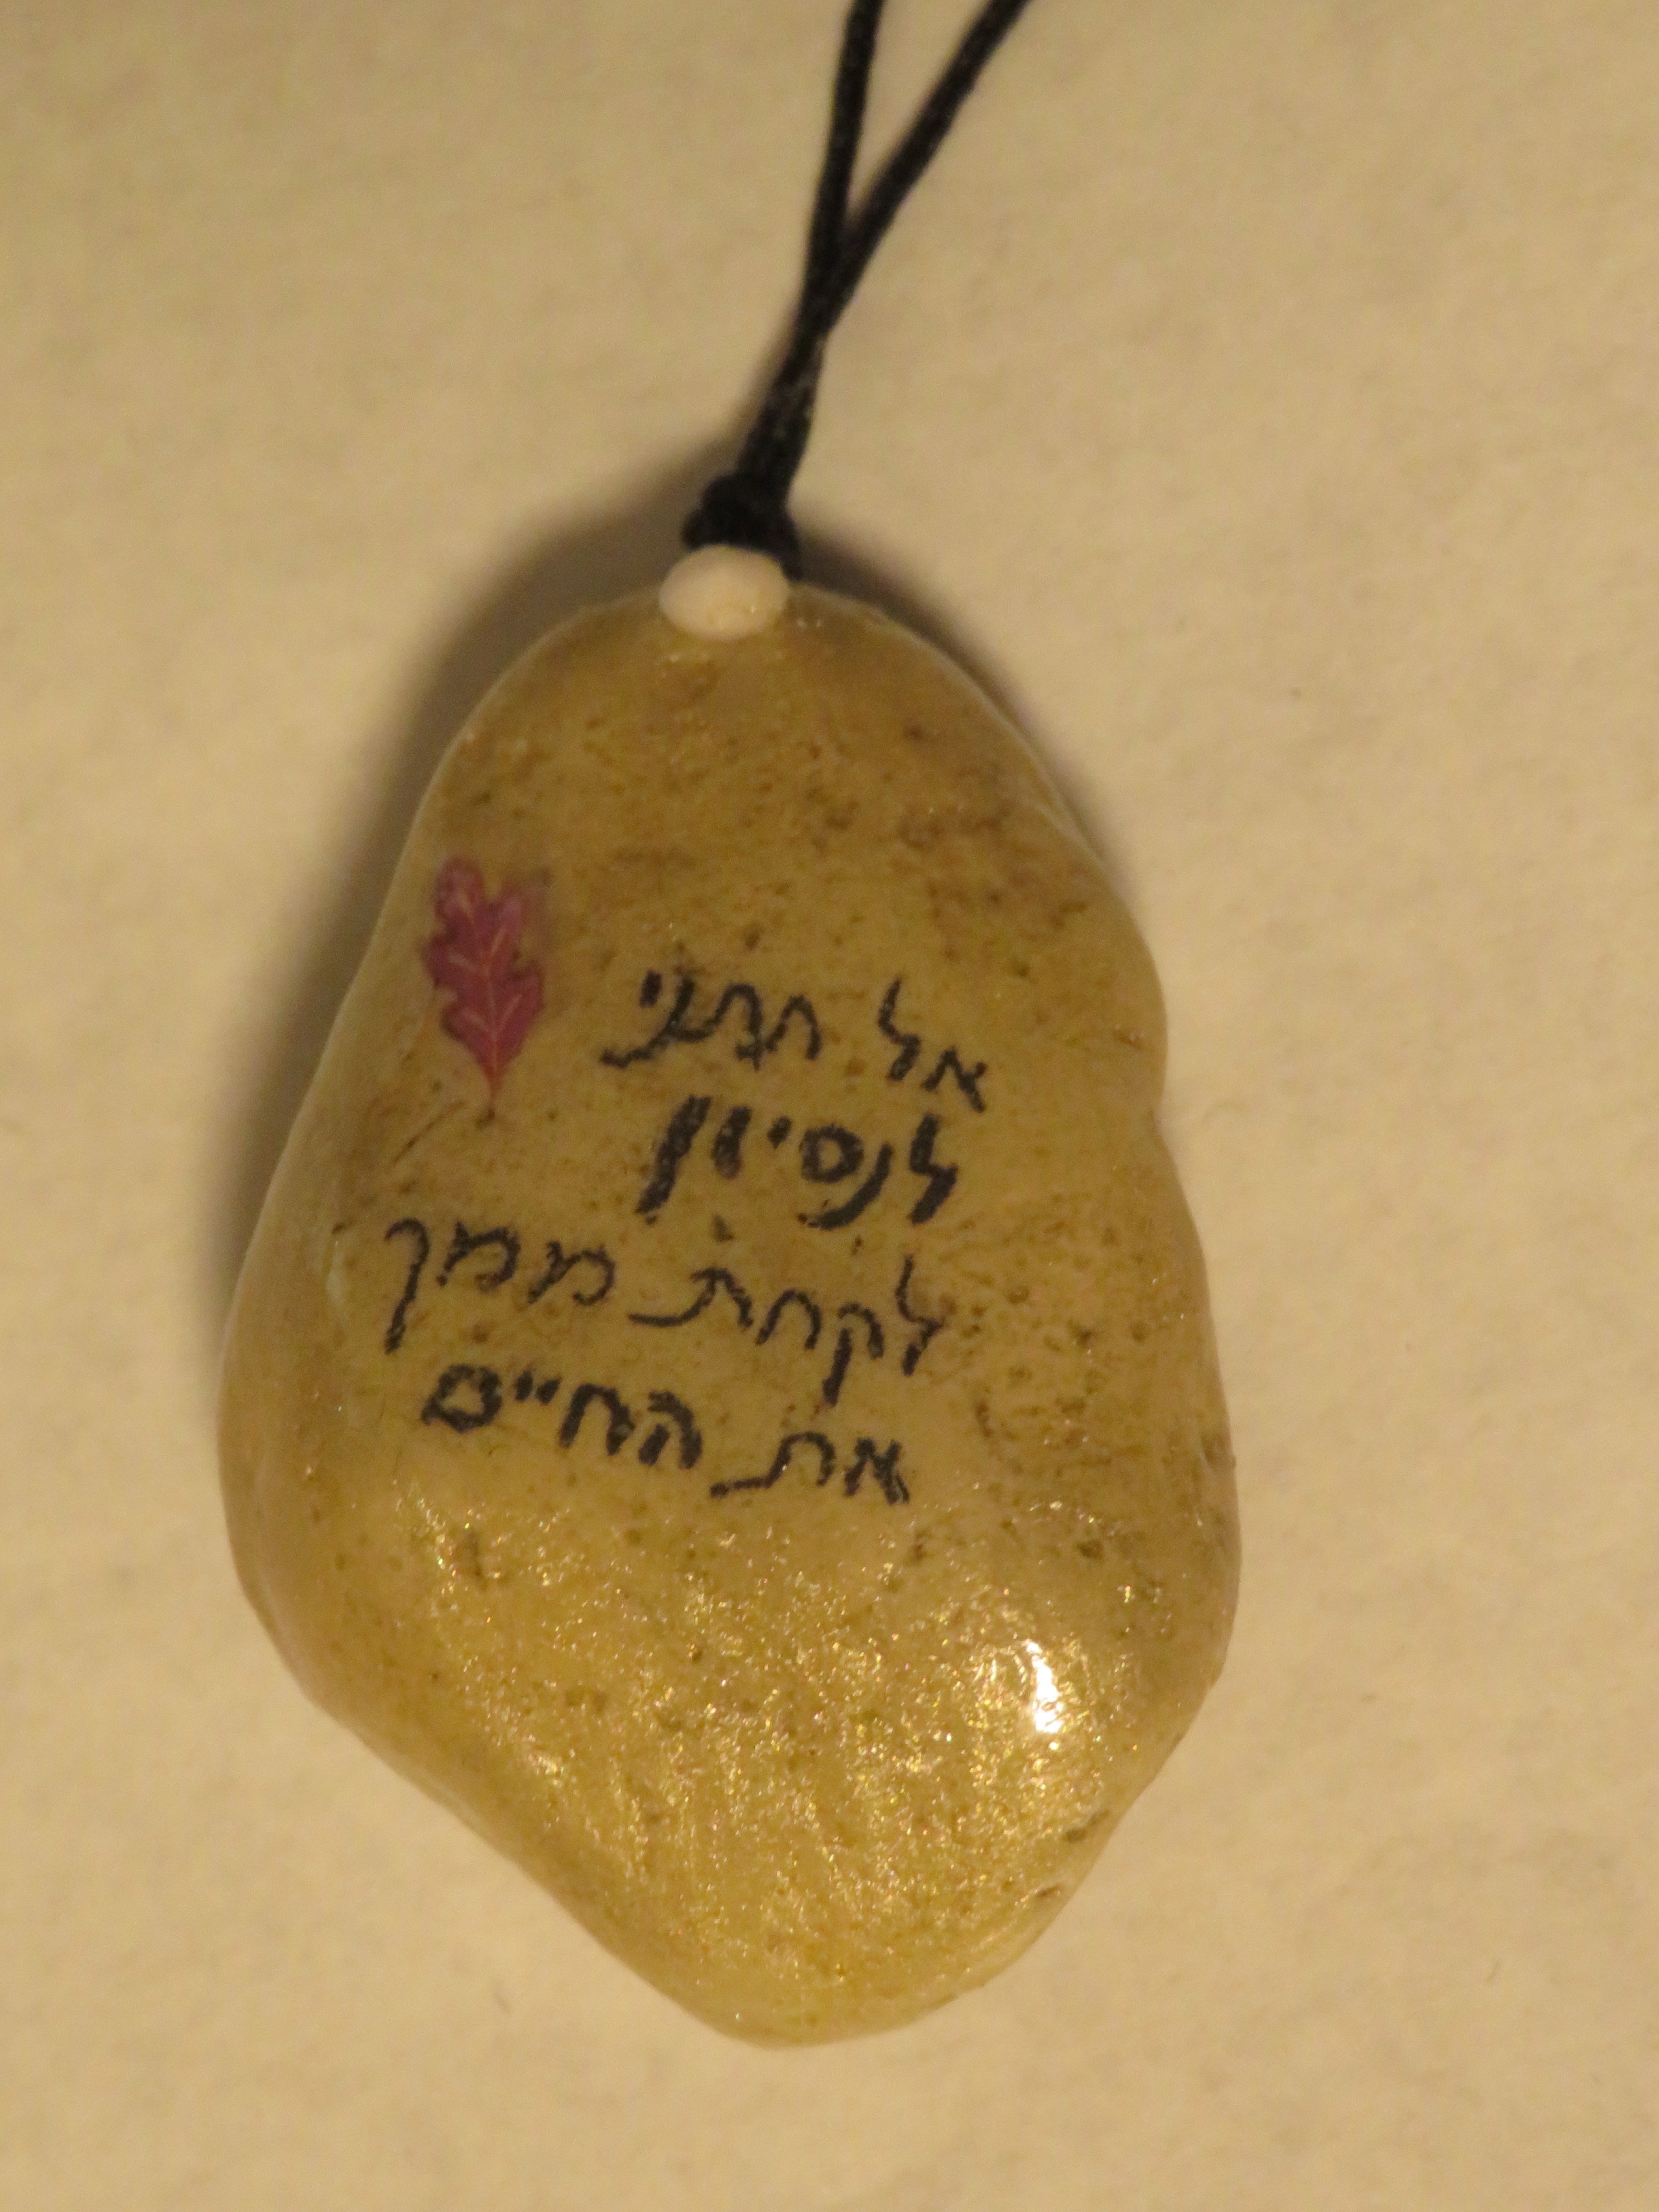 אל תתני
לנסיון
לקחת ממך
את החיים